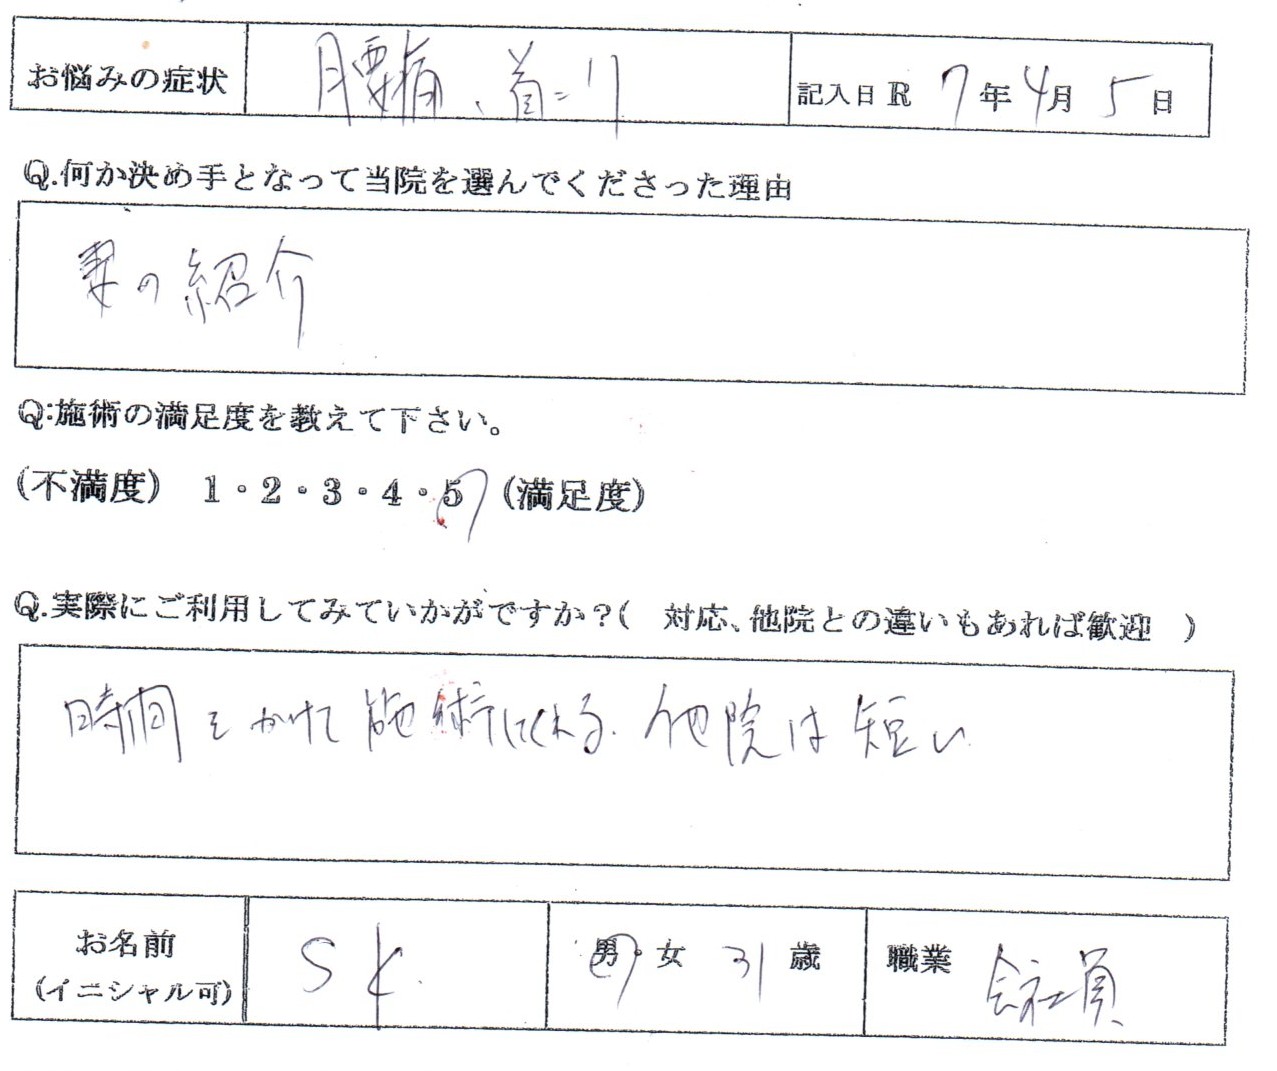 お悩みの症状 腰痛、首こり 記入日 R 7年4月5日
Q.何か決め手となって当院を選んでくださった理由
妻の紹介
Q:施術の満足度を教えて下さい。
(不満度) 1・2・3・4・5 (満足度)
Q.実際にご利用してみていかがですか?( 対応、他院との違いもあれば歓迎 )
時間をかけて施術してくれる。他院は短い
お名前 S K. 男・女 31歳 職業 会社員
(イニシャル可)